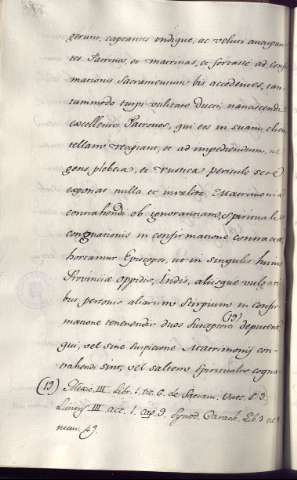 gerunt, captantes undique, ac veluti aucupan-
tes Patrinos, et matrinas, et fortasse ad Conf
mationis Sacramentum bis accedentes, tan-
tummodo turpi utilitate ducti, nanciscendi
excellentes Patronos, qui eos in suam clien
tellam recipiant, et ad impediendum, ne
gens plebeia, et rustica periculo se se
exponat nulla et invalida Matrimonia
contrahendi ob ignorantiam, spiritualis
cognationis in confirmatione contracta
hortamur Episcopos, ut in singulis huius
Provinciæ oppidis, Indis, aliisque vulga
bus personis aliarum Stirpium in confir
matione tenendis duos susceptores (19) deputent
qui, vel sine suspicione Matrimonij con-
trahendi sint, vel saltem spiritualis cogna
(19) Mexic. III. Libr. 1. tit. 6. de Sacram.
Limens. III. act. 1. cap. Synod.